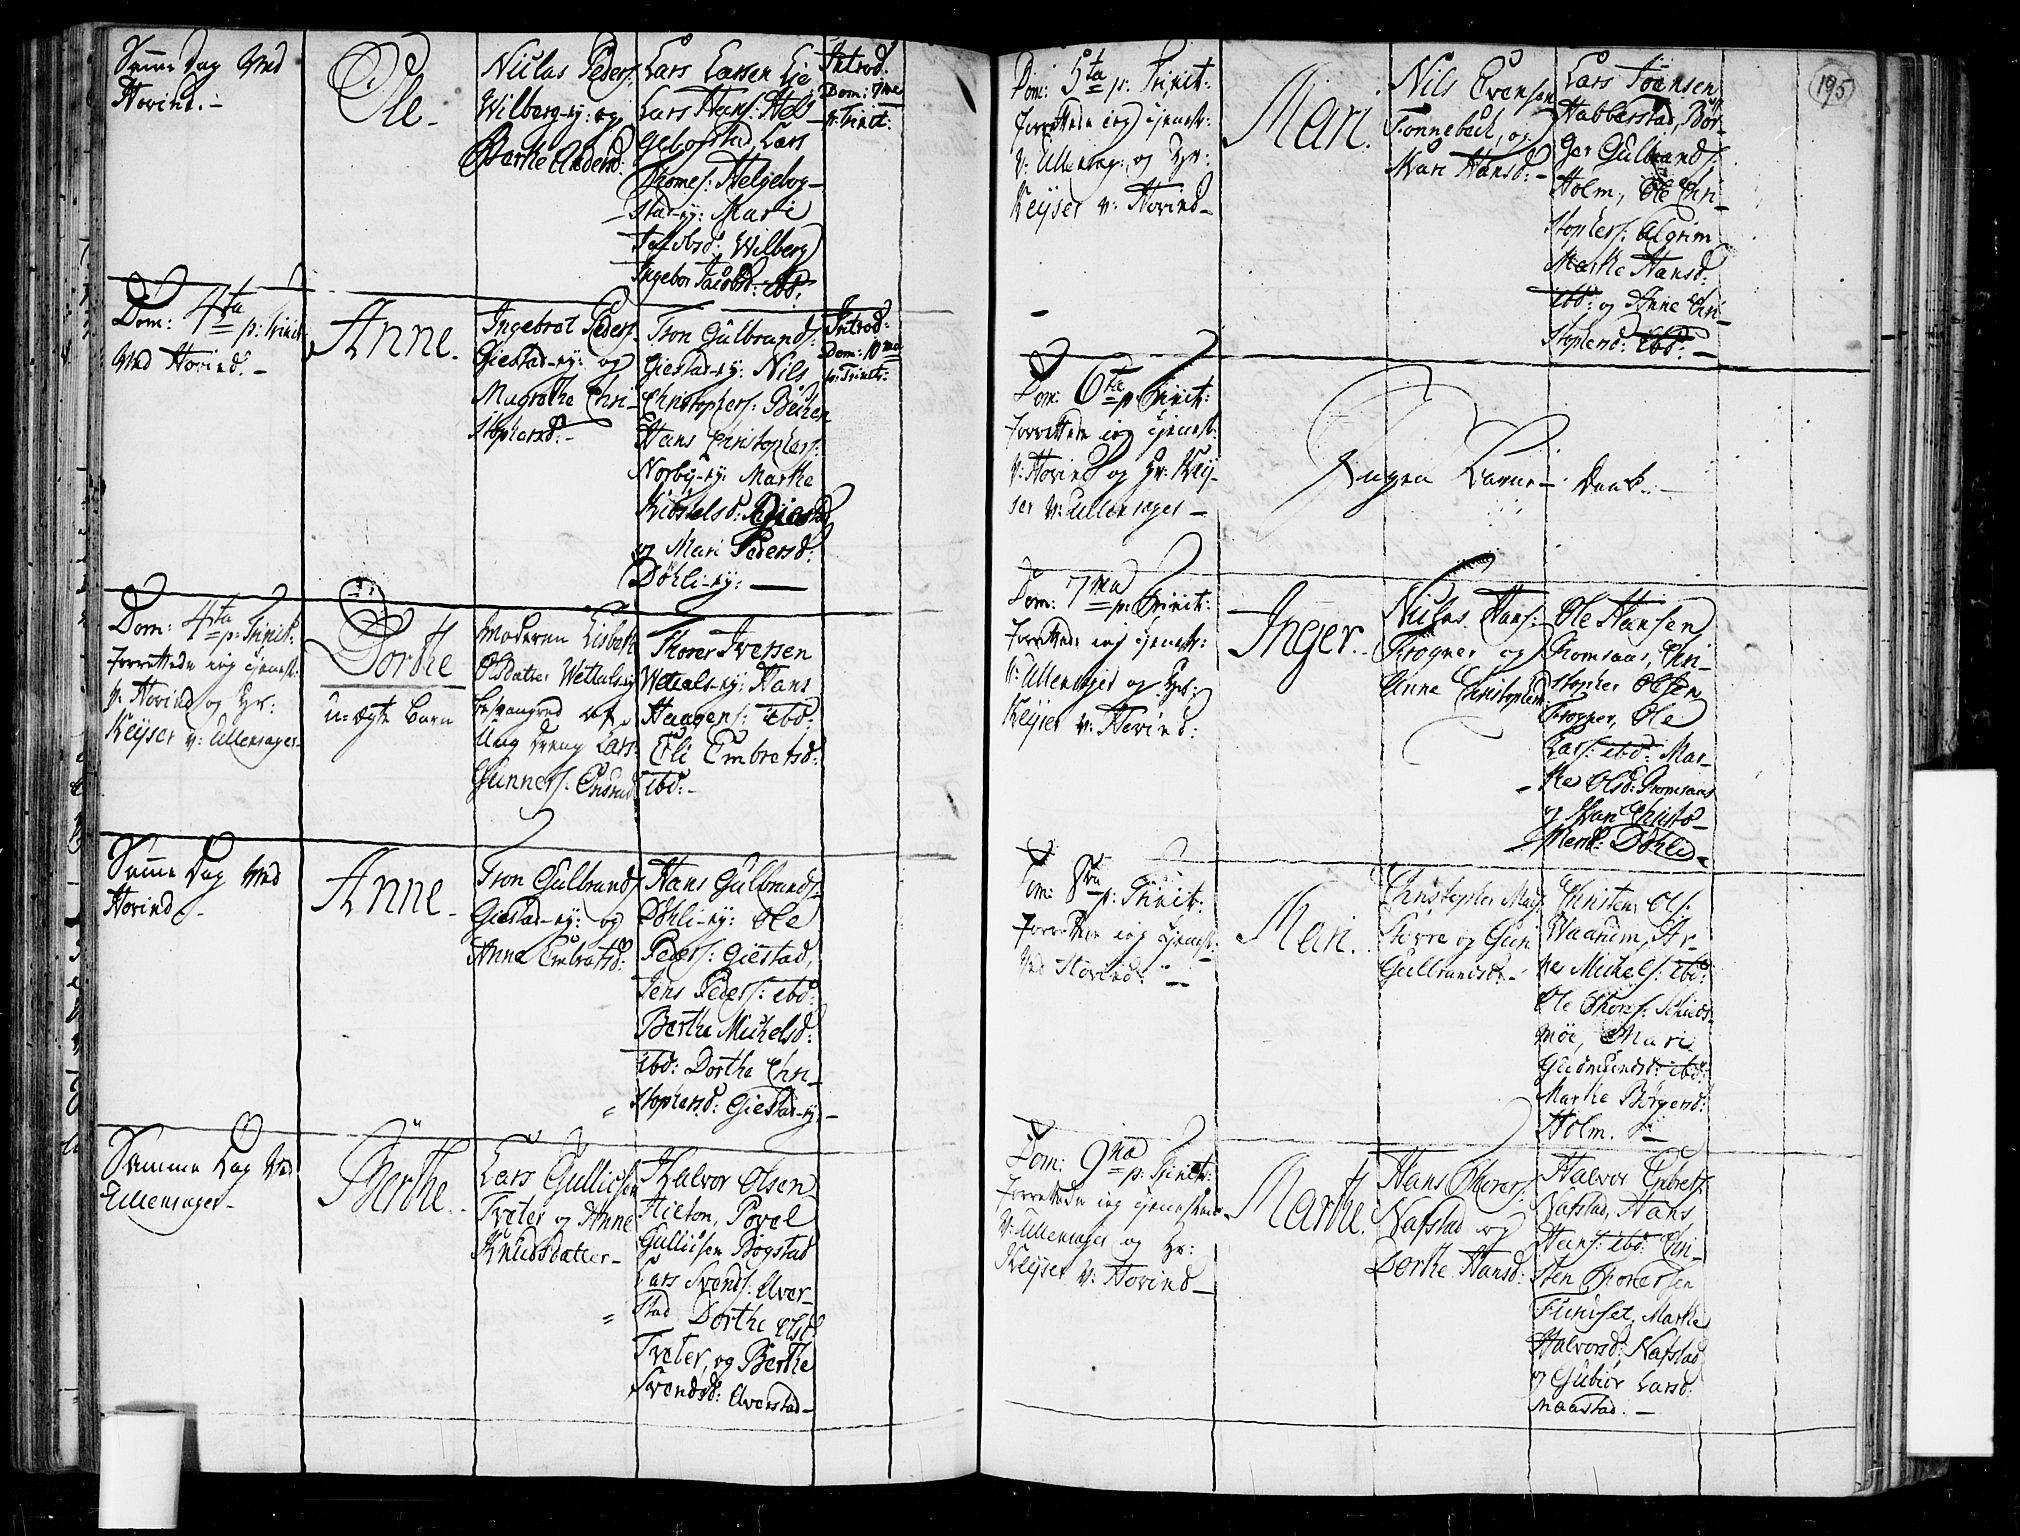 Samme Dag ved
Hovind. –
Ole.
Niclas Peders:
Wilberg-ej: og
Barthe Anders d:
Lars Larsen Lie
Lars Hans: Hel-
gebostad, Lars
Thomes: Helgebog-
stad-ej: Mari
Jacobsd: Wilberg
Ingebor Jacobsd: ibd:
Introd:
Dom: 7ma
p: Trinit:
Dom: 4ta p: Trinit:
ved Hovind. –
Anne.
Ingebret Peders:
Giestad-ej: og
Magrethe Chri-
stophersd: –
Tron Gulbrands:
Giestad-ej: Nils
Christophers:
Hans Christophers:
Norby-ej: Marthe
Kiøstelsd: Giestad
og Mari Pedersd:
Døhli-ej: —
Introd:
Dom: 10ma
p: Trinit:
Dom: 4ta p: Trinit:
forrettede jeg tjenest:
v: Hovind og Hr:
Keyser v: Ullensager –
Dorthe
u-ægte barn
Moderen Lisbeth
Olsdatter Wettals-ej
besvangred af
Ung Dreng Lars
Gunners:
Thorer Iversen
Wettals-ej: Hans
Haagens: ibd:
Eli Embretsd:
ibd: –
Samme Dag ved
Hovind –
Anne –
Tron Gulbrands:
Giestad-ej: og
Anne Embretsd:
Hans Gulbrands:
Døhli-ej: Ole
Peders: Giestad,
Jens Peders: ibd:
Berthe Michelsd:
ibd: Dorthe Chri-
stophersd: Giestad-ej: –
Samme Dag ved
Ullensager –
Berthe.
Lars Gullicsen
Tveter og Anne
Knudsdatter –
Halvor Olsen
Hilton, Povel
Gullicsen Bogstad
Lars Svends: Elver-
stad Dorthe Olsd
Tveter, og Berthe
Svendsd: Elverstad –
195
Dom: 5ta p: Trinit:
forrettede jeg tjenest:
v: Ullensag: og Hr:
Keyser v: Hovind –
Mari.
Nils Evensen
Tonnebæk, og
Mari Hansd: –
Lars Joensen
Habberstad, Bør-
ger Gulbrands:
Holm, Ole Chri-
stophers: Algrim
Marthe Hansd:
ibd: og Anne Chri-
stophersd: ibd: –
Dom: 6ta p: Trinit:
forrettede jeg tjenest:
v: Hovind og Hr: Key-
ser v: Ullensager –
Ingen Barne – Daab. –
Dom: 7ma p: Trinit:
forrettede jeg tjenest:
v: Ullensager og Hr:
Keyser v: Hovind:
Inger.
Niclas Hans:
Frogner og
Anne Christophersd:
Ole Hansen
Thomsaas, Chri-
stopher Olsen
Frogner, Ole
Lars: ibd: Mar-
the Olsd: Thomsaas
og Mari Christo-
phersd: Døhli –
Dom: 8va p: Trinit:
forrettede jeg tjenest:
ved Hovind. –
Mari.
Christopher
og Guri
Gulbrandsd: –
Christen Ols:
Waarum, Ar-
ne Michels: ibd:
Ole Thores: Schids-
møe, Mari
Gudmundsd: ibd:
Marthe Børgersd:
Holm. –
Dom: 9na p: Trinit:
forrettede jeg tjenesten
v: Ullensager og Hr:
Keyser v: Hovind –
Marthe.
Hans Thores:
Nafstad og
Dorthe Hansd:
Halvor
Nafstad, Hans
Hans: ibd: Chri-
sten Thoresen
Marthe
Halvorsd: Nafstad
og Gubiør Larsd:
Naastad. –